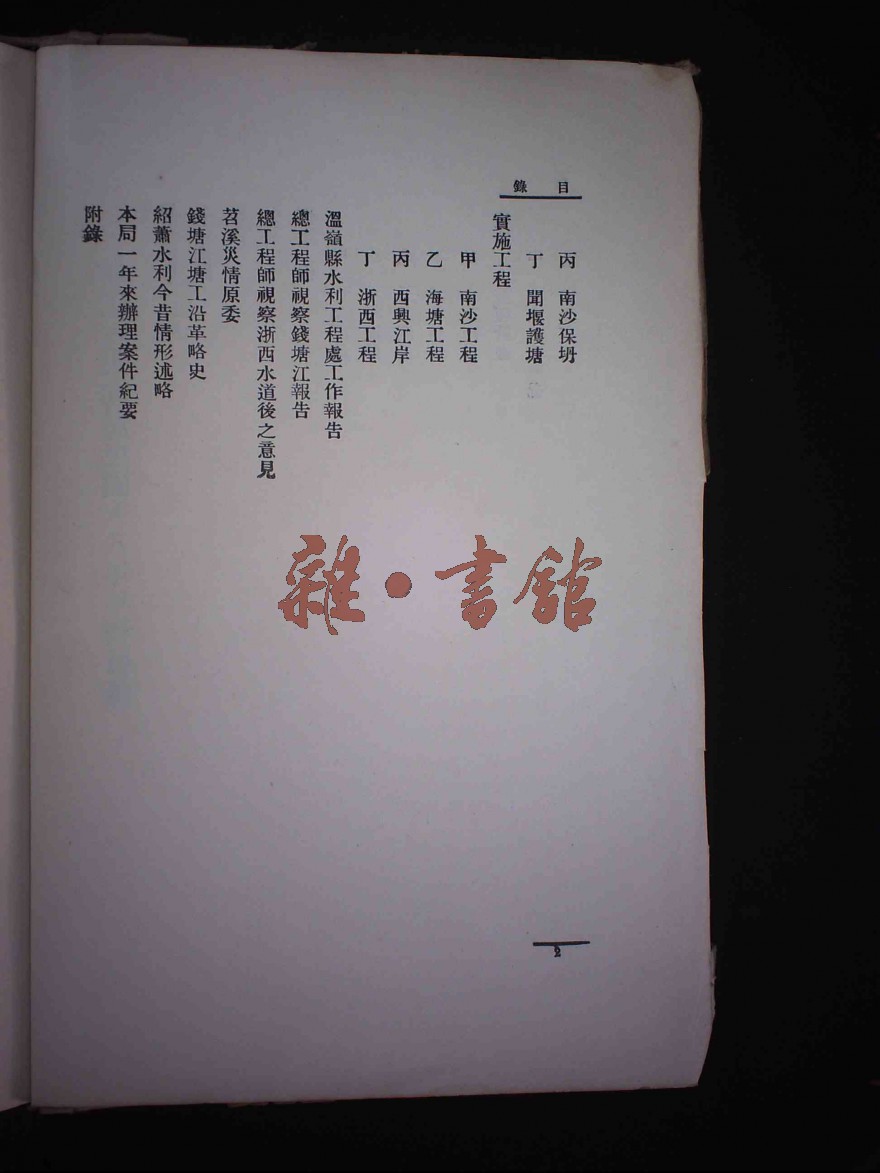 目錄
丙　南沙保坍
丁　聞堰護塘
實施工程
甲　南沙工程
乙　海塘工程
丙　西興江岸
丁　浙西工程
溫嶺縣水利工程處工作報告
總工程師視察錢塘江報告
總工程師視察浙西水道後之意見
苕溪災情原委
錢塘江塘工沿革略史
紹蕭水利今昔情形述略
本局一年來辦理案件紀要
附錄
2
雜·書館